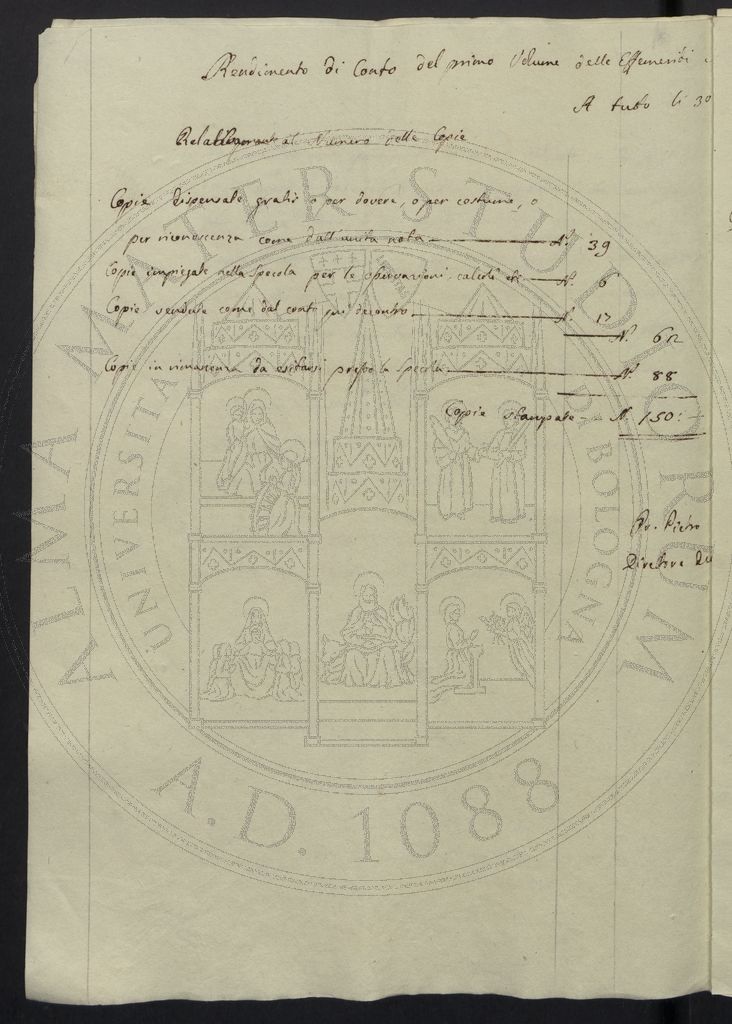 Rendimento di Conto del primo Volume delle Effemeridi
A tutto li 30
Relativamente al Numero delle Copie
Copie dispensate gratis o per dovere, o per costume, o
per riconoscenza come dall'unita nota N.° 39
Copie impiegate nella Specola per le osservazioni, calcoli etc N.° 6
Copie vendute come dal conto qui dicontro N.° 17
N.° 62
Copie in rimanenza da esitarsi presso la Specola N.° 88
Copie stampate N. 150:
Pietro
Direttore
ALMA MATER STUDIORUM
UNIVERSITA DI BOLOGNA
A.D. 1088